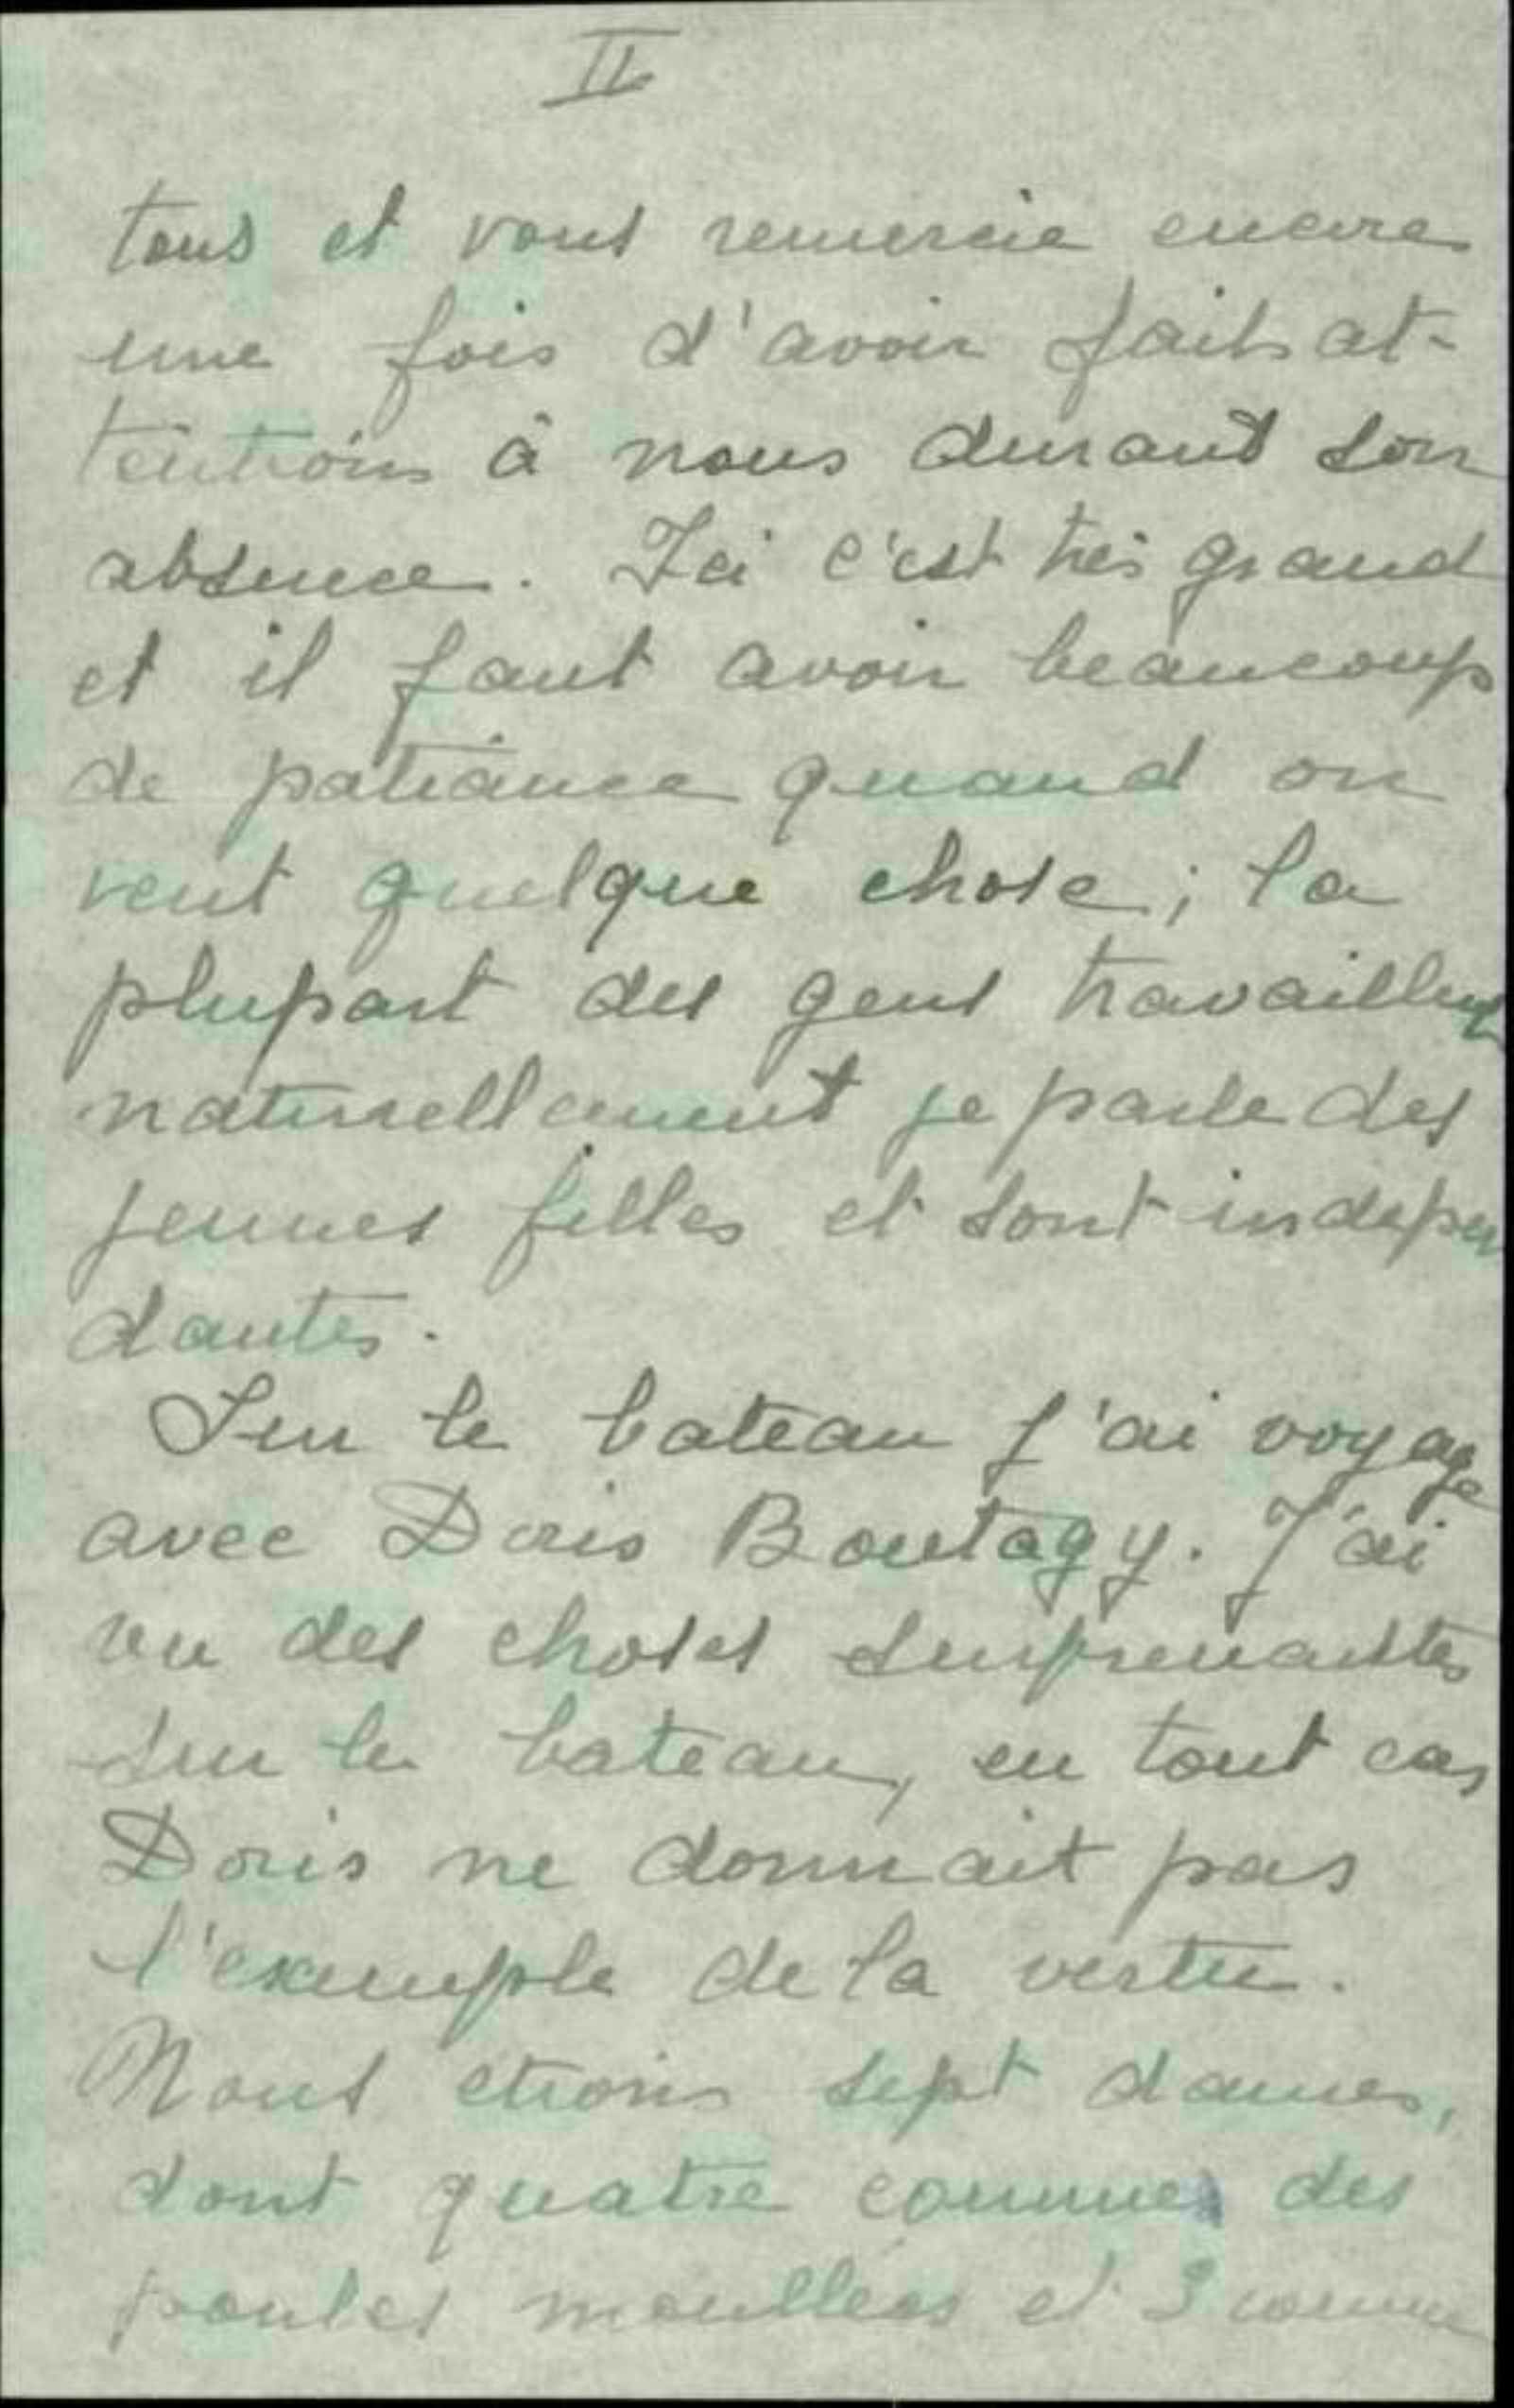 II
tous et vous remercie encore
une fois d'avoir fait at-
tention à nous durant son
absence. Ici c'est très grand
et il faut avoir beaucoup
de patiance quand on
veut quelque chose; la
plupart des gens travaillent
naturellement je parle des
jeunes filles et sont indepen
dantes.
Sur le bateau j'ai voyage
avec Doris Boutagy. J'ai
vu des choses surprenantes
sur le bateau, en tout cas
Doris ne donnait pas
l'exemple de la vertu.
Nous etions sept dames,
dont quatre comme des
poules mouillées et 3 comme